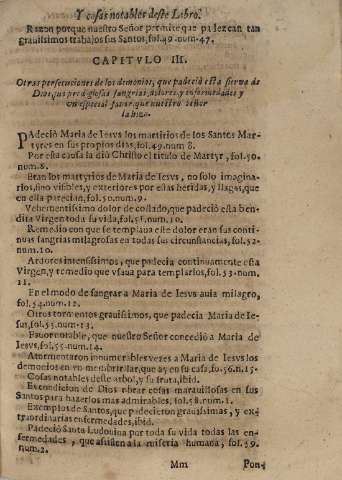 Y cosas notables deste Libro.
Razon porque nuestro Señor permite que padezcan tan
grauissimos trabajos sus Santos, fol.49.num.47.
CAPITVLO III.
Otras persecuciones de los demonios, que padeciò esta sierua de
Dios, sus prodigiosas sangrias, dolores, y enfermedades y
en especial fauor que nuestro Señor
la hizo.
PAdeciò Maria de Iesvs los martirios de los Santos Mar-
tyres en sus propios dias, fol.49.num 8.
Por esta causa la diò Christo el titulo de Martyr, fol.50.
num.8.
Eran los martyrios de Maria de Iesvs, no solo imagina-
rios, sino visibles, y exteriores por estas heridas, y llagas, que
en ella parecian, fol.50.num.9.
Vehementissimo dolor de costado, que padeciò esta ben-
dita Virgen toda su vida, fol.51.num.10.
Remedio con que se templaua este dolor eran sus conti-
nuas sangrias milagrosas en todas sus circunstancias, fol.52.
num.10.
Ardores intensissimos, que padecia continuamente esta
Virgen, y remedio que vsaua para templarlos, fol.53.num.
11.
En el modo de sangrar a Maria de Iesvs auia milagro,
fol.54.num.12.
Otros tormentos grauissimos, que padecia Maria de Ie-
sus, fol.55.num.13.
Fauor notable, que nuestro Señor concediò a Maria de
Iesvs, fol.55.num.14.
Atormentaron innumerables vezes a Maria de Iesvs los
demonios en vn membrillar, que ay en su casa, fo.56.n.15.
Cosas notables deste arbol, y su fruta, ibid.
Excondicion de Dios obrar cosas marauillosas en sus
Santos para hazerlos mas admirables, fol.58.num.1.
Exemplos de Santos, que padecieron grauissimas, y ex-
traordinarias enfermedades, ibid.
Padeciò Santa Ludouina por toda su vida todas las en-
fermedades, que assisten a la miseria humana, fol.59.
num.2.
Mm Pon-